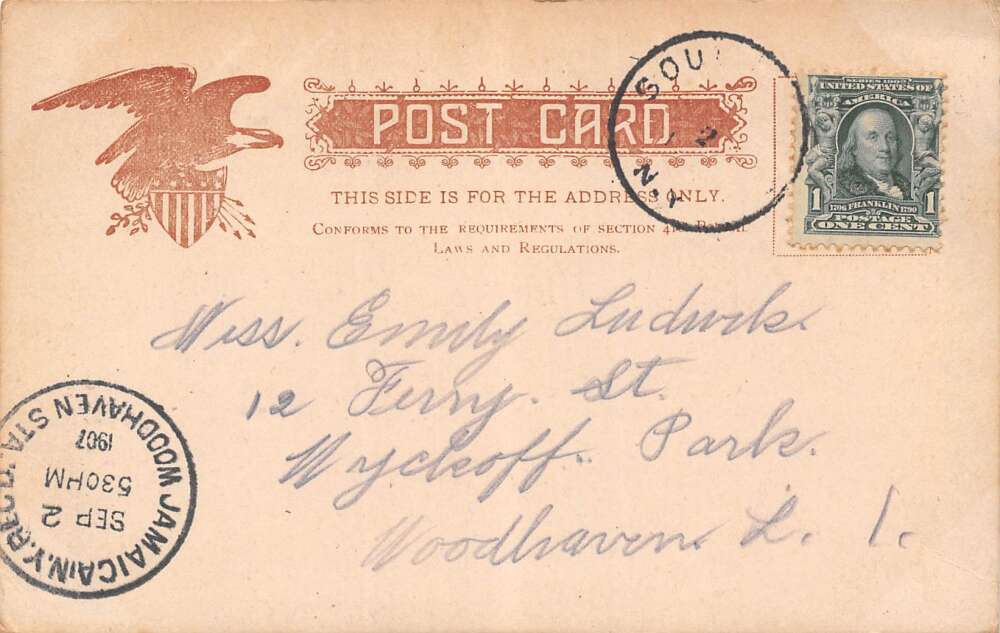 POST CARD
THIS SIDE IS FOR THE ADDRESS ONLY.
CONFORMS TO THE REQUIREMENTS OF SECTION
LAWS AND REGULATIONS.
SOU
2
N.Y.
SERIES 1902
UNITED STATES OF
AMERICA
1 1
1706 FRANKLIN 1790
POSTAGE
ONE CENT
Miss. Emily Ludwick
12 Ferry. St.
Wyckoff. Park.
Woodhaven. L. I.
JAMAICA, N.Y. REC'D.
SEP 2
530 PM
1907
WOODHAVEN STA.